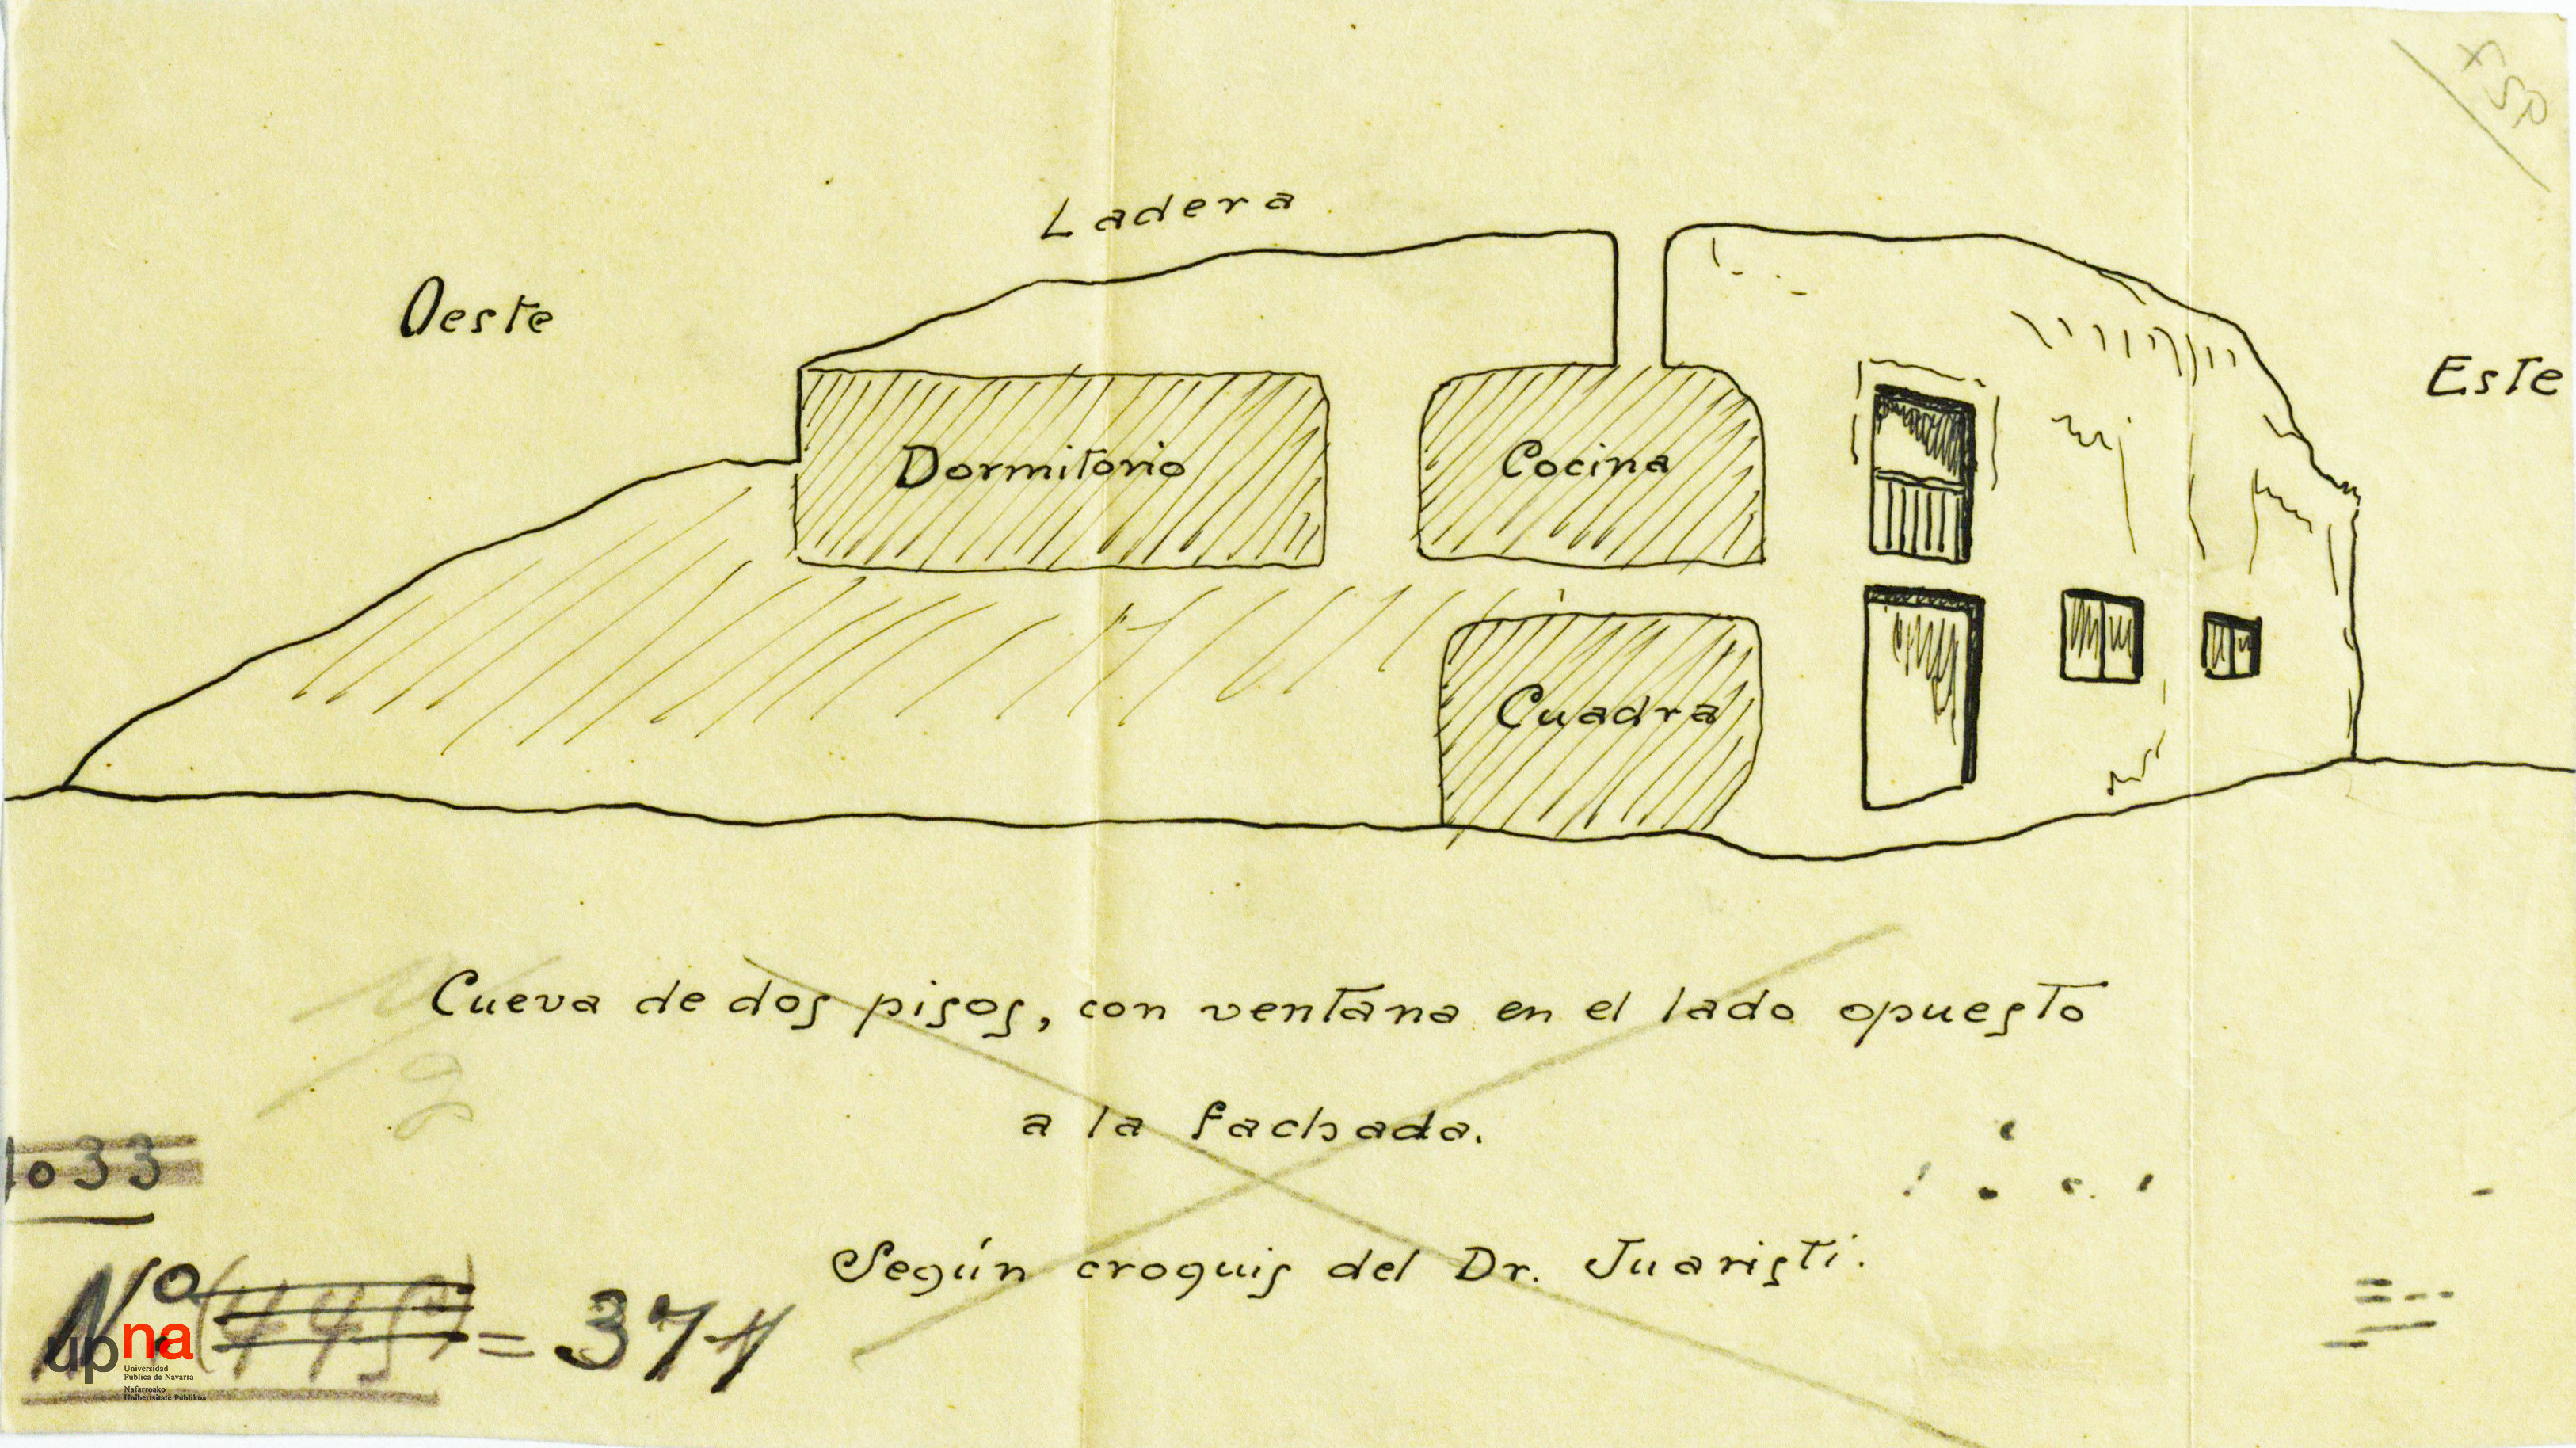 Ladera
Oeste
Este
Dormitorio
Cocina
Cuadra
Cueva de dos pisos, con ventana en el lado opuesto
a la fachada.
Según croquis del Dr. Juaristi.
1033
Nº = 371
upna
Universidad
Pública de Navarra
Nafarroako
Unibertsitate Publikoa